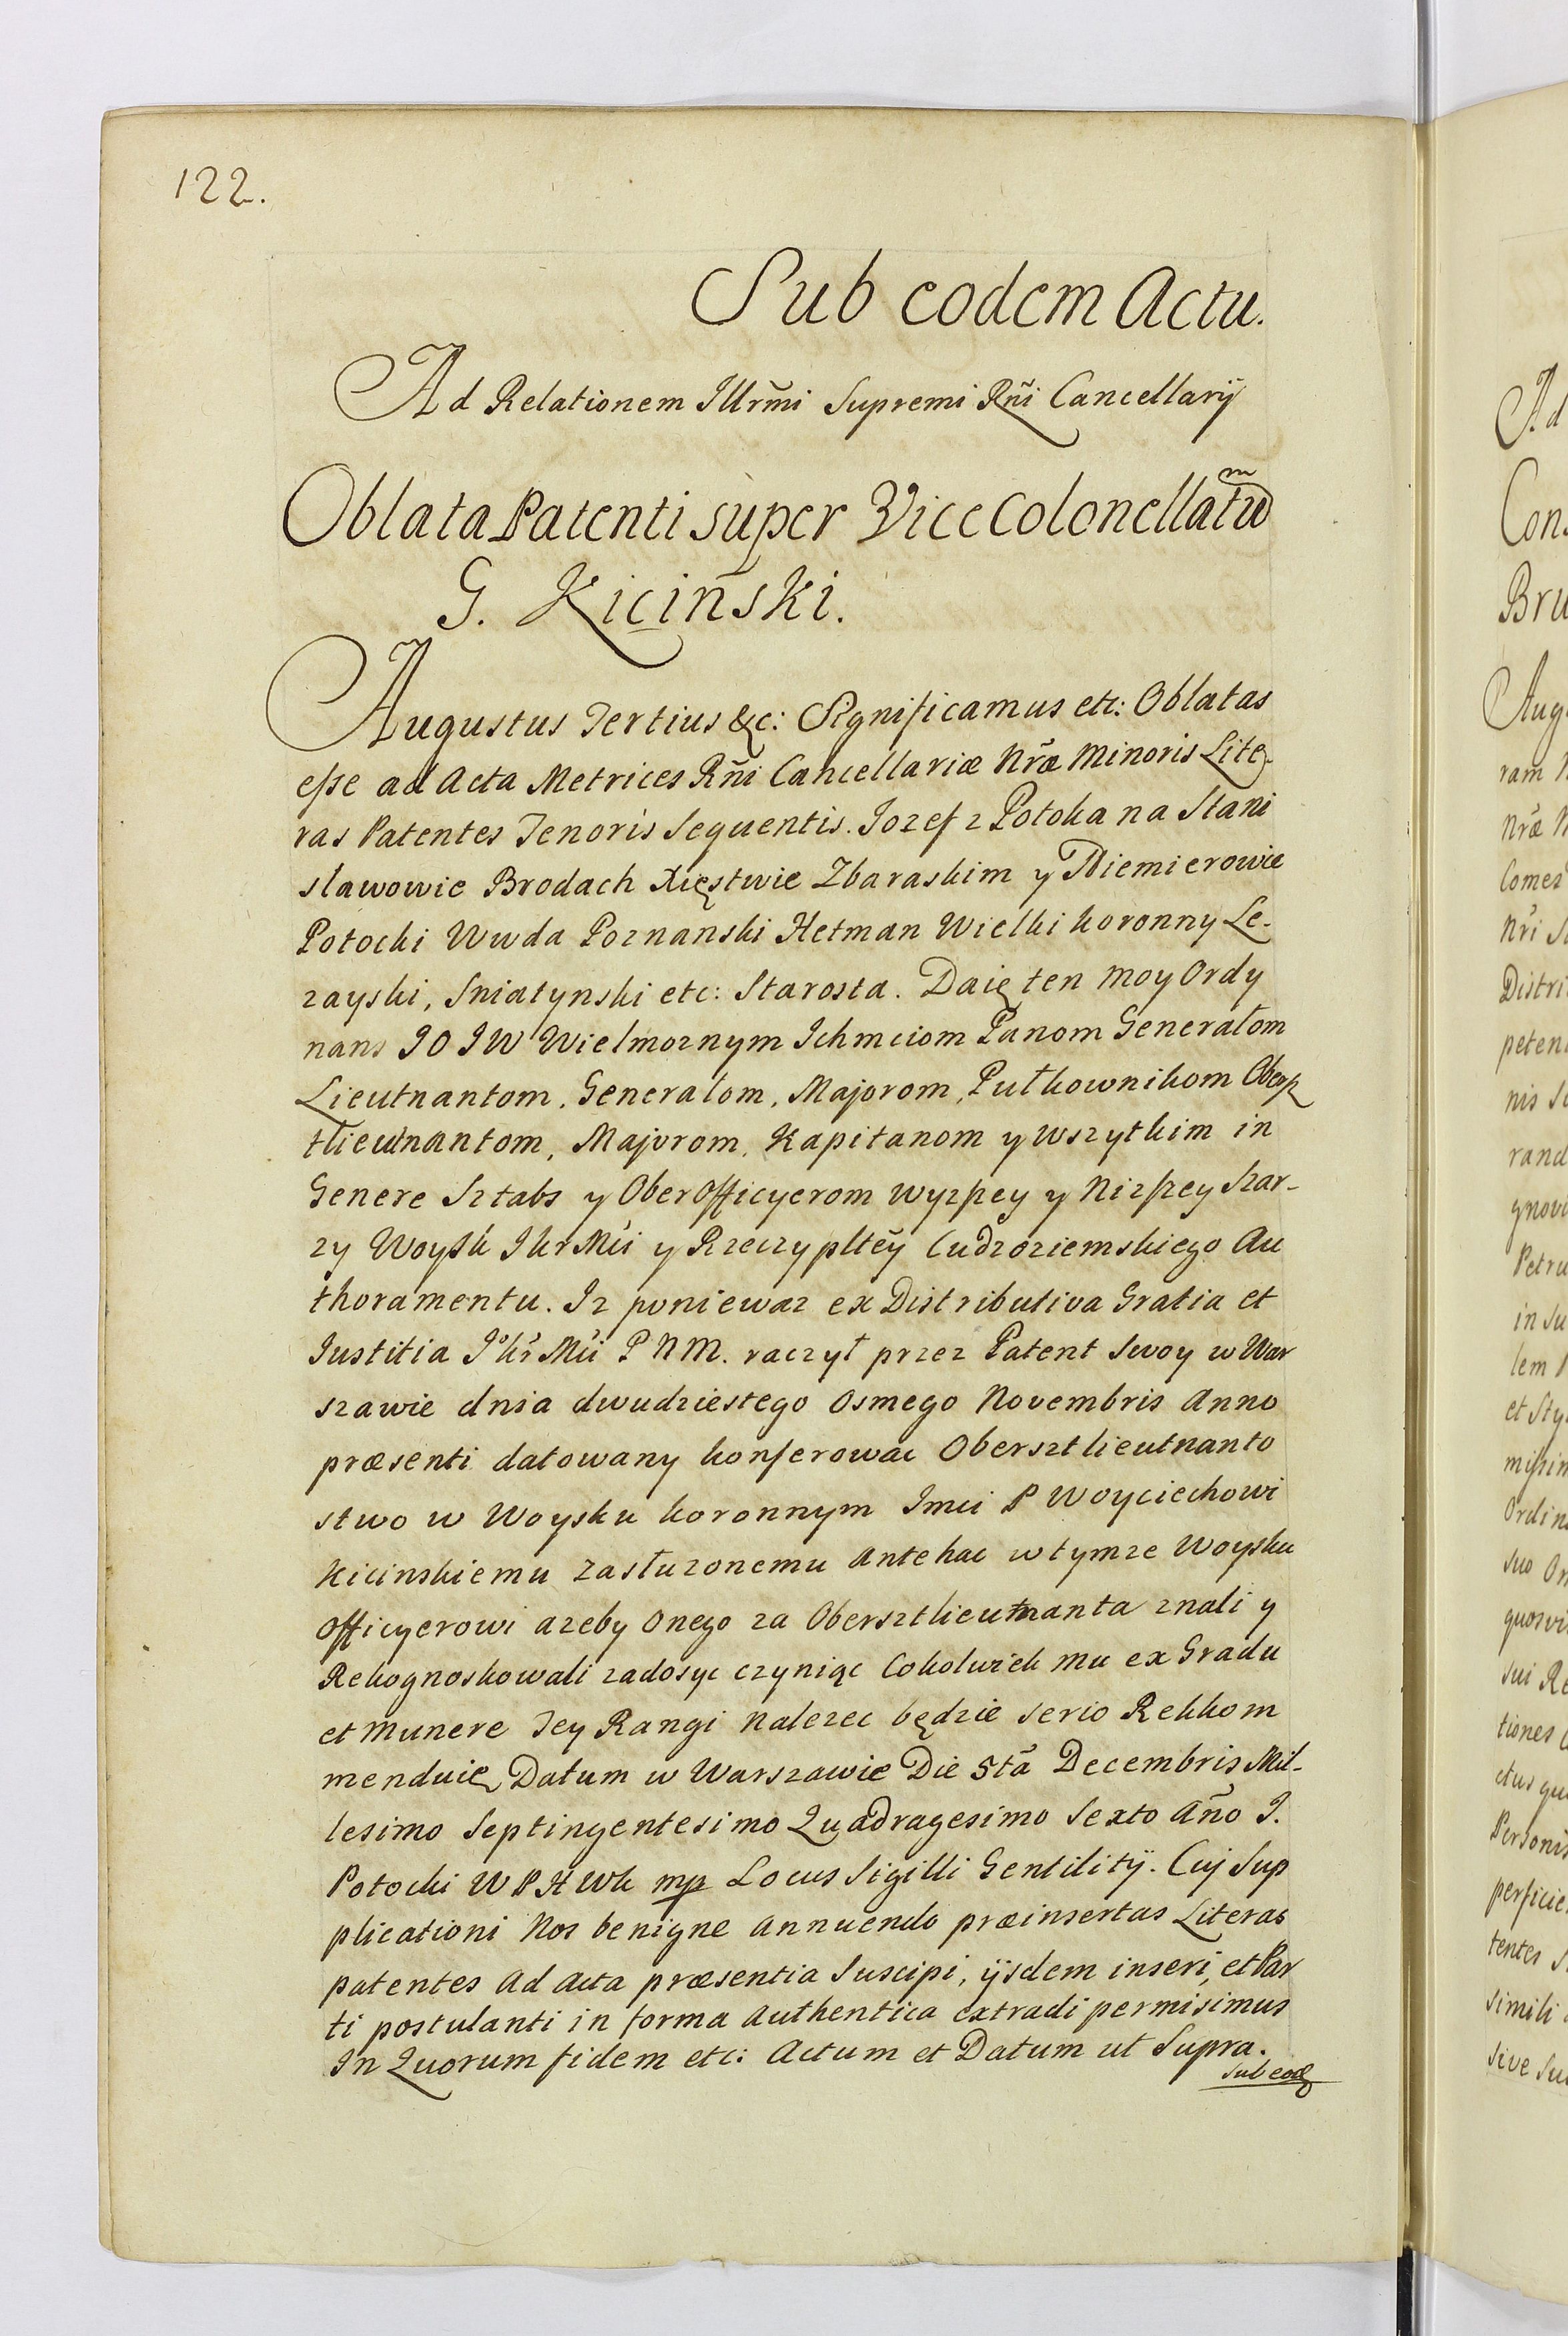 122.
Sub eodem Actu.
Ad Relationem Illrm̃i Supremi Rñi Cancellarij
Oblata Patenti super Vice Colonellatũm
G. Kiciński.
Augustus Tertius &c: Significamus etc: Oblatas
esse ad Acta Metrices Rñi Cancellariæ Nræ Minoris Lite-
ras Patentes Tenoris Sequentis. Jozef z Potoka na Stani
sławowie Brodach Xięstwie Zbaraskim y Niemierowie
Potocki Wwda Poznanski Hetman Wielki koronny Le-
zayski, Sniatynski etc: Starosta. Daię ten moy Ordy
nans JO JW Wielmoznym Ichmciom Panom Generałom
Lieutnantom, Generałom, Majorom, Pułkownikom Obersz
tlieutnantom, Majorom, Kapitanom y wszytkim in
Genere Sztabs y Oberofficyerom wyzszey y Nizszey szar-
zy Woysk Jkr Mci y Rzeczypltey Cudzoziemskiego Au
thoramentu. Iz poniewaz ex Distributiva Gratia et
Justitia Jo kr Mci P N M. raczył przez Patent swoy w War
szawie dnia dwudziestego osmego Novembris Anno
præsenti datowany konferowac Obersztlieutnanto
stwo w Woysku koronnym Imci P Woyciechowi
Kicinskiemu zasłuzonemu antehac w tymze Woysku
officyerowi azeby onego za Obersztlieutnanta znali y
Rekognoskowali zadosyc czyniąc Cokolwiek mu ex Gradu
et munere Jey Rangi nalezec będzie serio Rekkom
menduię Datum w Warszawie Die 5tã Decembris Mil-
lesimo Septingentesimo Quadragesimo Sexto Año J.
Potocki W P H Wk mp Locus Sigilli Gentilitij. Cuj Sup
plicationi Nos benigne annuendo præinsertas Literas
patentes ad acta præsentia Suscipi, ijsdem inseri, et Par
ti postulanti in forma authentica extradi permisimus
In Quorum fidem etc: Actum et Datum ut Supra.
Sub eod
Ad
Con
Bru
Aug
ram
Nræ
Comes
Nri
Distri
peten
nis
rand
gnov
Petru
in Su
lem
et Sty
missim
Ordin
suo
quosvi
sui Re
tiones
ctus qu
Personis
perficie
tentes
simili
sive Su